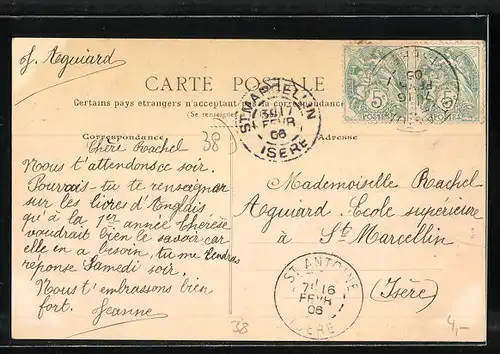 J. Aeguiard
CARTE POSTALE
Certains pays étrangers n'acceptent pas la correspondance
(Se renseigner
Correspondance
Adresse
38
Chère Rachel
Nous t'attendons ce soir.
Pourrais-tu te renseigner
sur les livres d'Anglais
qu'à la 1er année Thérèse
voudrait bien le savoir car
elle en a besoin, tu me rendras
réponse Samedi soir.
Nous t'embrassons bien
fort. Jeanne
Mademoiselle Rachel
Aeguiard École supérieure
à St Marcellin
(Isère)
ST MARCELLIN
FEVR
06
ISERE
ST. ANTOINE
7 16
FEVR
06
ISERE
5c
POSTES
5c
POSTES
38
4,-